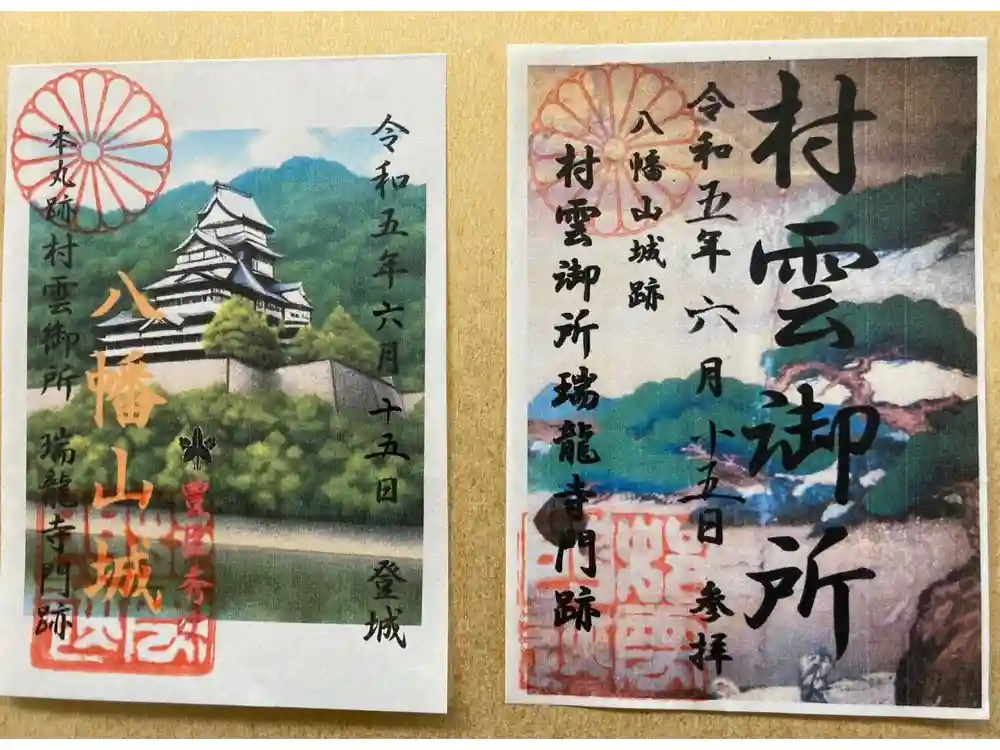 令和五年六月十五日 登城
豊臣秀次
八幡山城
本丸跡村雲御所 瑞龍寺門跡
村雲御所
令和五年六月十五日 参拝
八幡山城跡
村雲御所瑞龍寺門跡